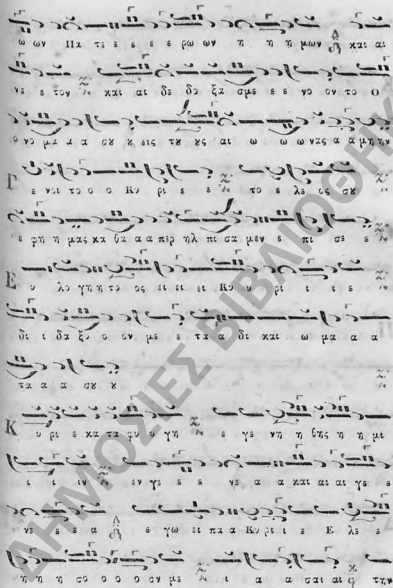 ω ων Πα τε ε ε ε ε ρω ων η η η μων και αι
νε ε τον και αι δε δο ξα σμε ε ε ε νο ον το Ο
ο νο μα α α σου ου εις του ους αι ω ω ω νας α α μη ην
Γ ε νοι το ο ο Κυ ρι ε ε το ε λε ος σου
ε φη η μας κα θα α α περ ηλ πι σα μεν ε πι σε ε
Ε υ λο γη η το ος ει ει ει Κυ υ ρι ι ι ε
δι ι δα ξο ο ον με ε τα α δι και ω μα α α
τα α α σου ου
Κ υ ρι ε κα τα φυ υ γη ε γε νη η θης η η μι
ι ι ιν εν γε ε ε νε α α και αι αι γε ε
νε ε ε α ε γω ει πα α Κυ ρι ι ε Ε λε ε
η η η σο ο ο ο ον με ι α α σαι αι την
ΔΗΜΟΣΙΕΣ ΒΙΒΛΙΟΘΗΚ